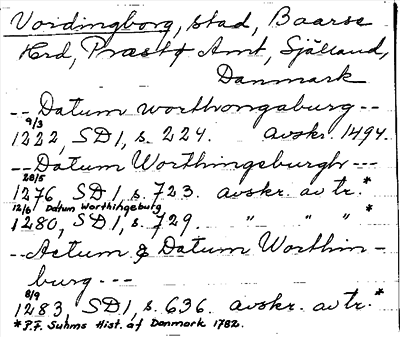 Vordingborg, stad, Baarse
Hrd, Præstø Amt, Sjælland,
Danmark
-- Datum worthongaburg --
9/3
1222, SD1, s. 224. avskr. 1494.
-- Datum Worthingeburgh ---
28/5
1276 SD1, s. 723. avskr. av tr.*
12/6 Datum Worthingeburg
1280, SD1, s. 729. " " " *
-- Actum & Datum Worthin-
burg ---
8/9
1283, SD1, s. 636. avskr. av tr.*
* P.F. Suhms Hist. af Danmark 1782.